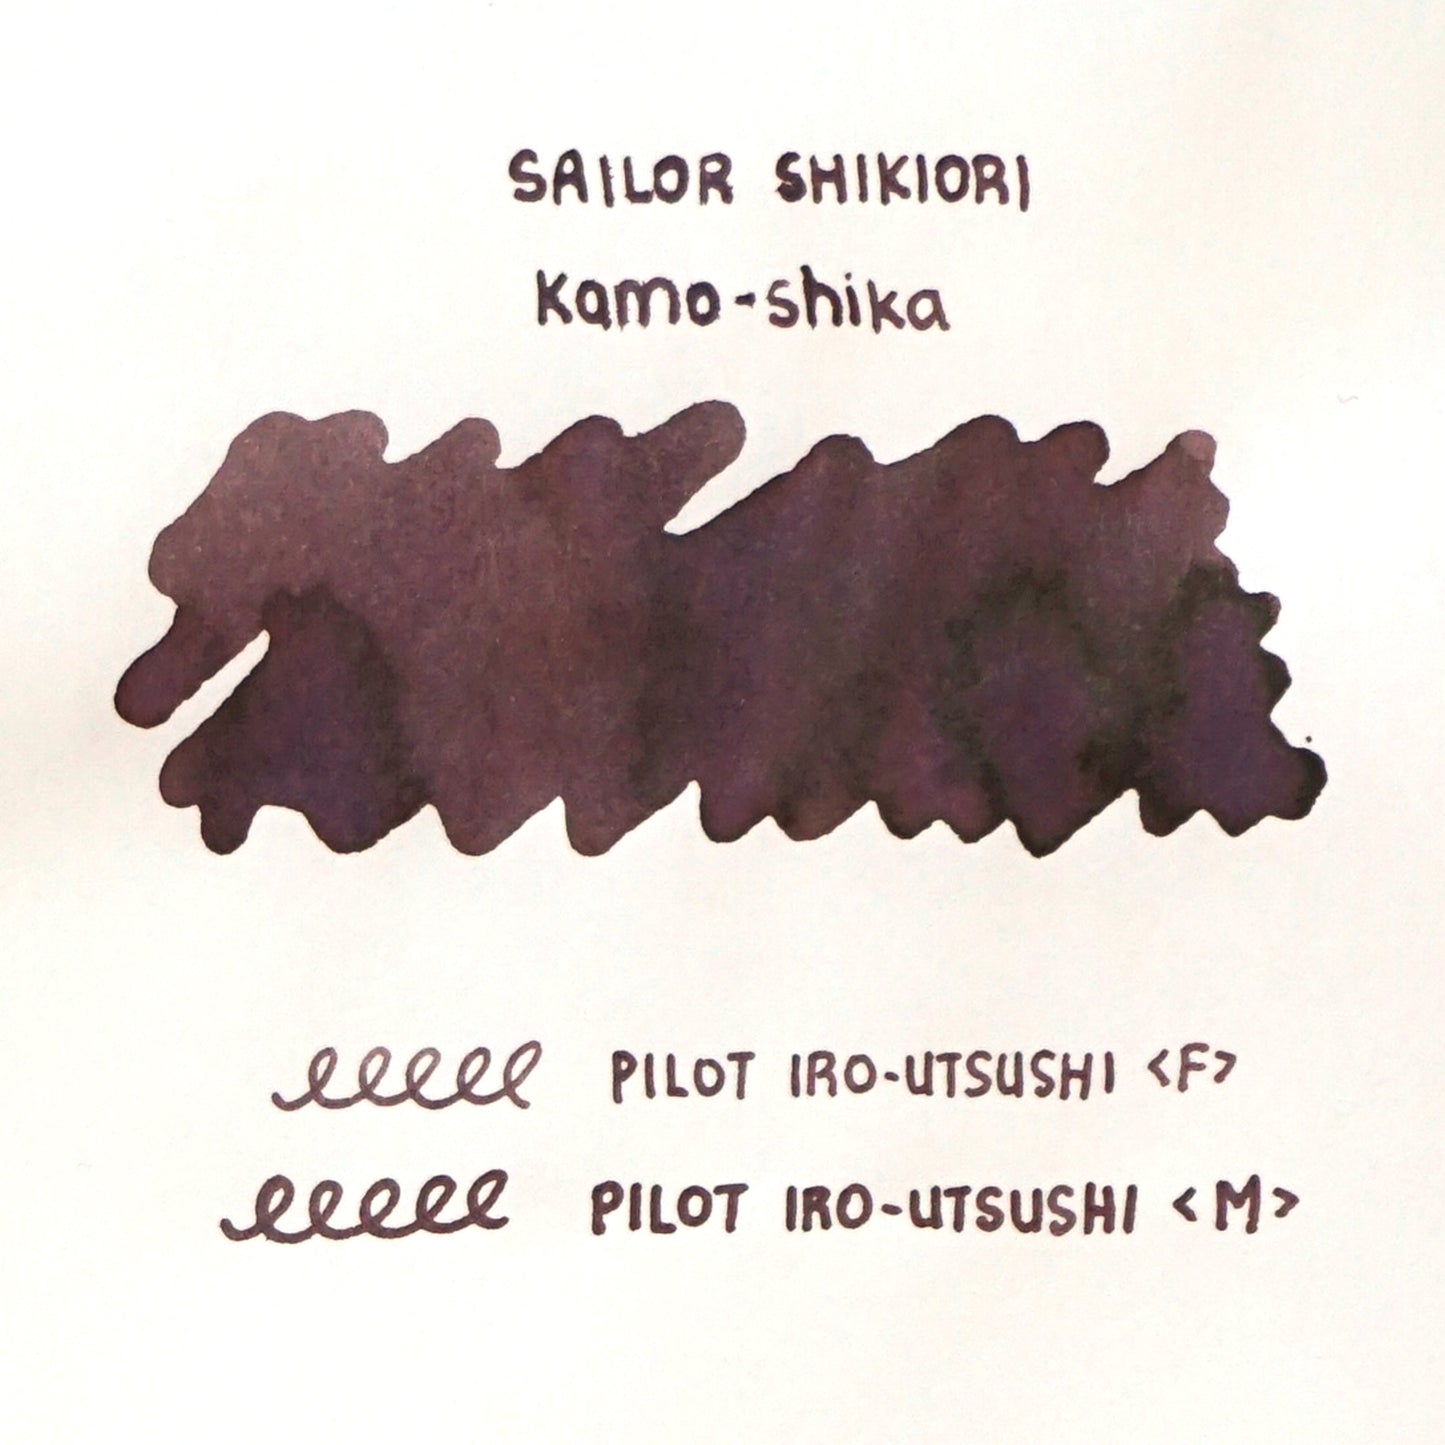 SAILOR SHIKIORI
Kamo-shika
PILOT IRO-UTSUSHI <F>
PILOT IRO-UTSUSHI <M>